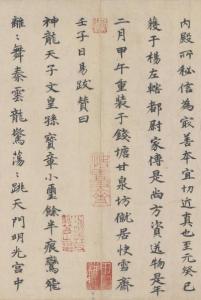 內殿所秘信為冣善本宜切近真也至元癸巳
獲于楊左轄都尉家傳是尚方資送物是年
二月甲午重裝于錢塘甘泉坊僦居快雪齋
壬子日易跋贊曰
神龍天子文皇孫寶章小璽餘半痕鸞飛
離〻舞秦雲龍驚蕩〻跳天門明光宮中